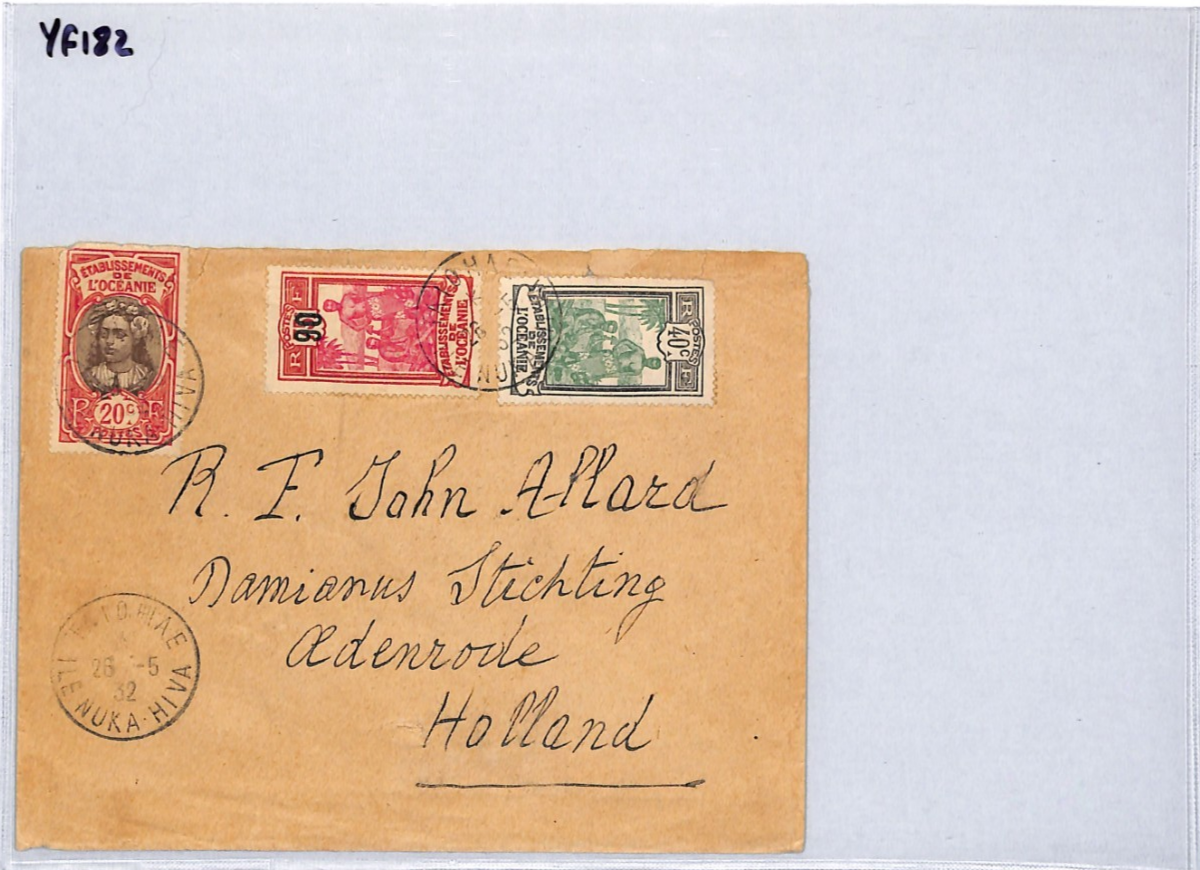 YF182
ÉTABLISSEMENTS
DE
L'OCÉANIE
R 20c F
POSTES
NUKA-HIVA
RF
POSTES
90
ÉTABLISSEMENTS
DE
L'OCÉANIE
ÉTABLISSEMENTS
DE
L'OCÉANIE
RF
POSTES
40c
R. F. John Allard
Damianus Stichting
Ædenrode
Holland
26 -5
32
ILE NUKA-HIVA